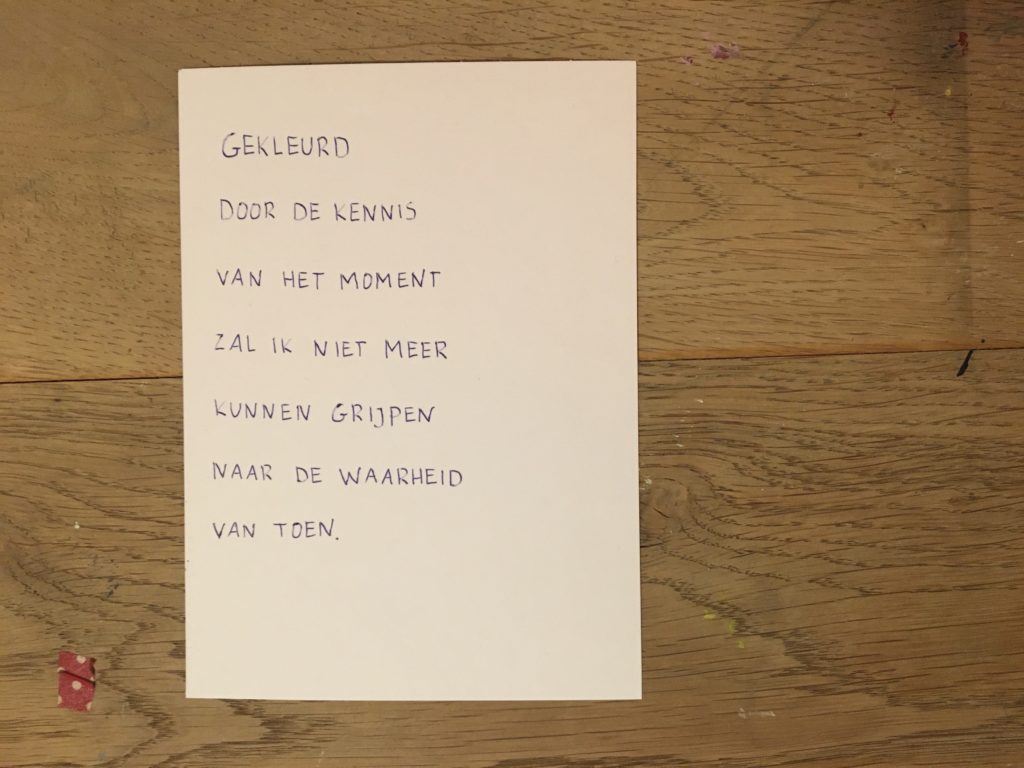 GEKLEURD
DOOR DE KENNIS
VAN HET MOMENT
ZAL IK NIET MEER
KUNNEN GRIJPEN
NAAR DE WAARHEID
VAN TOEN.